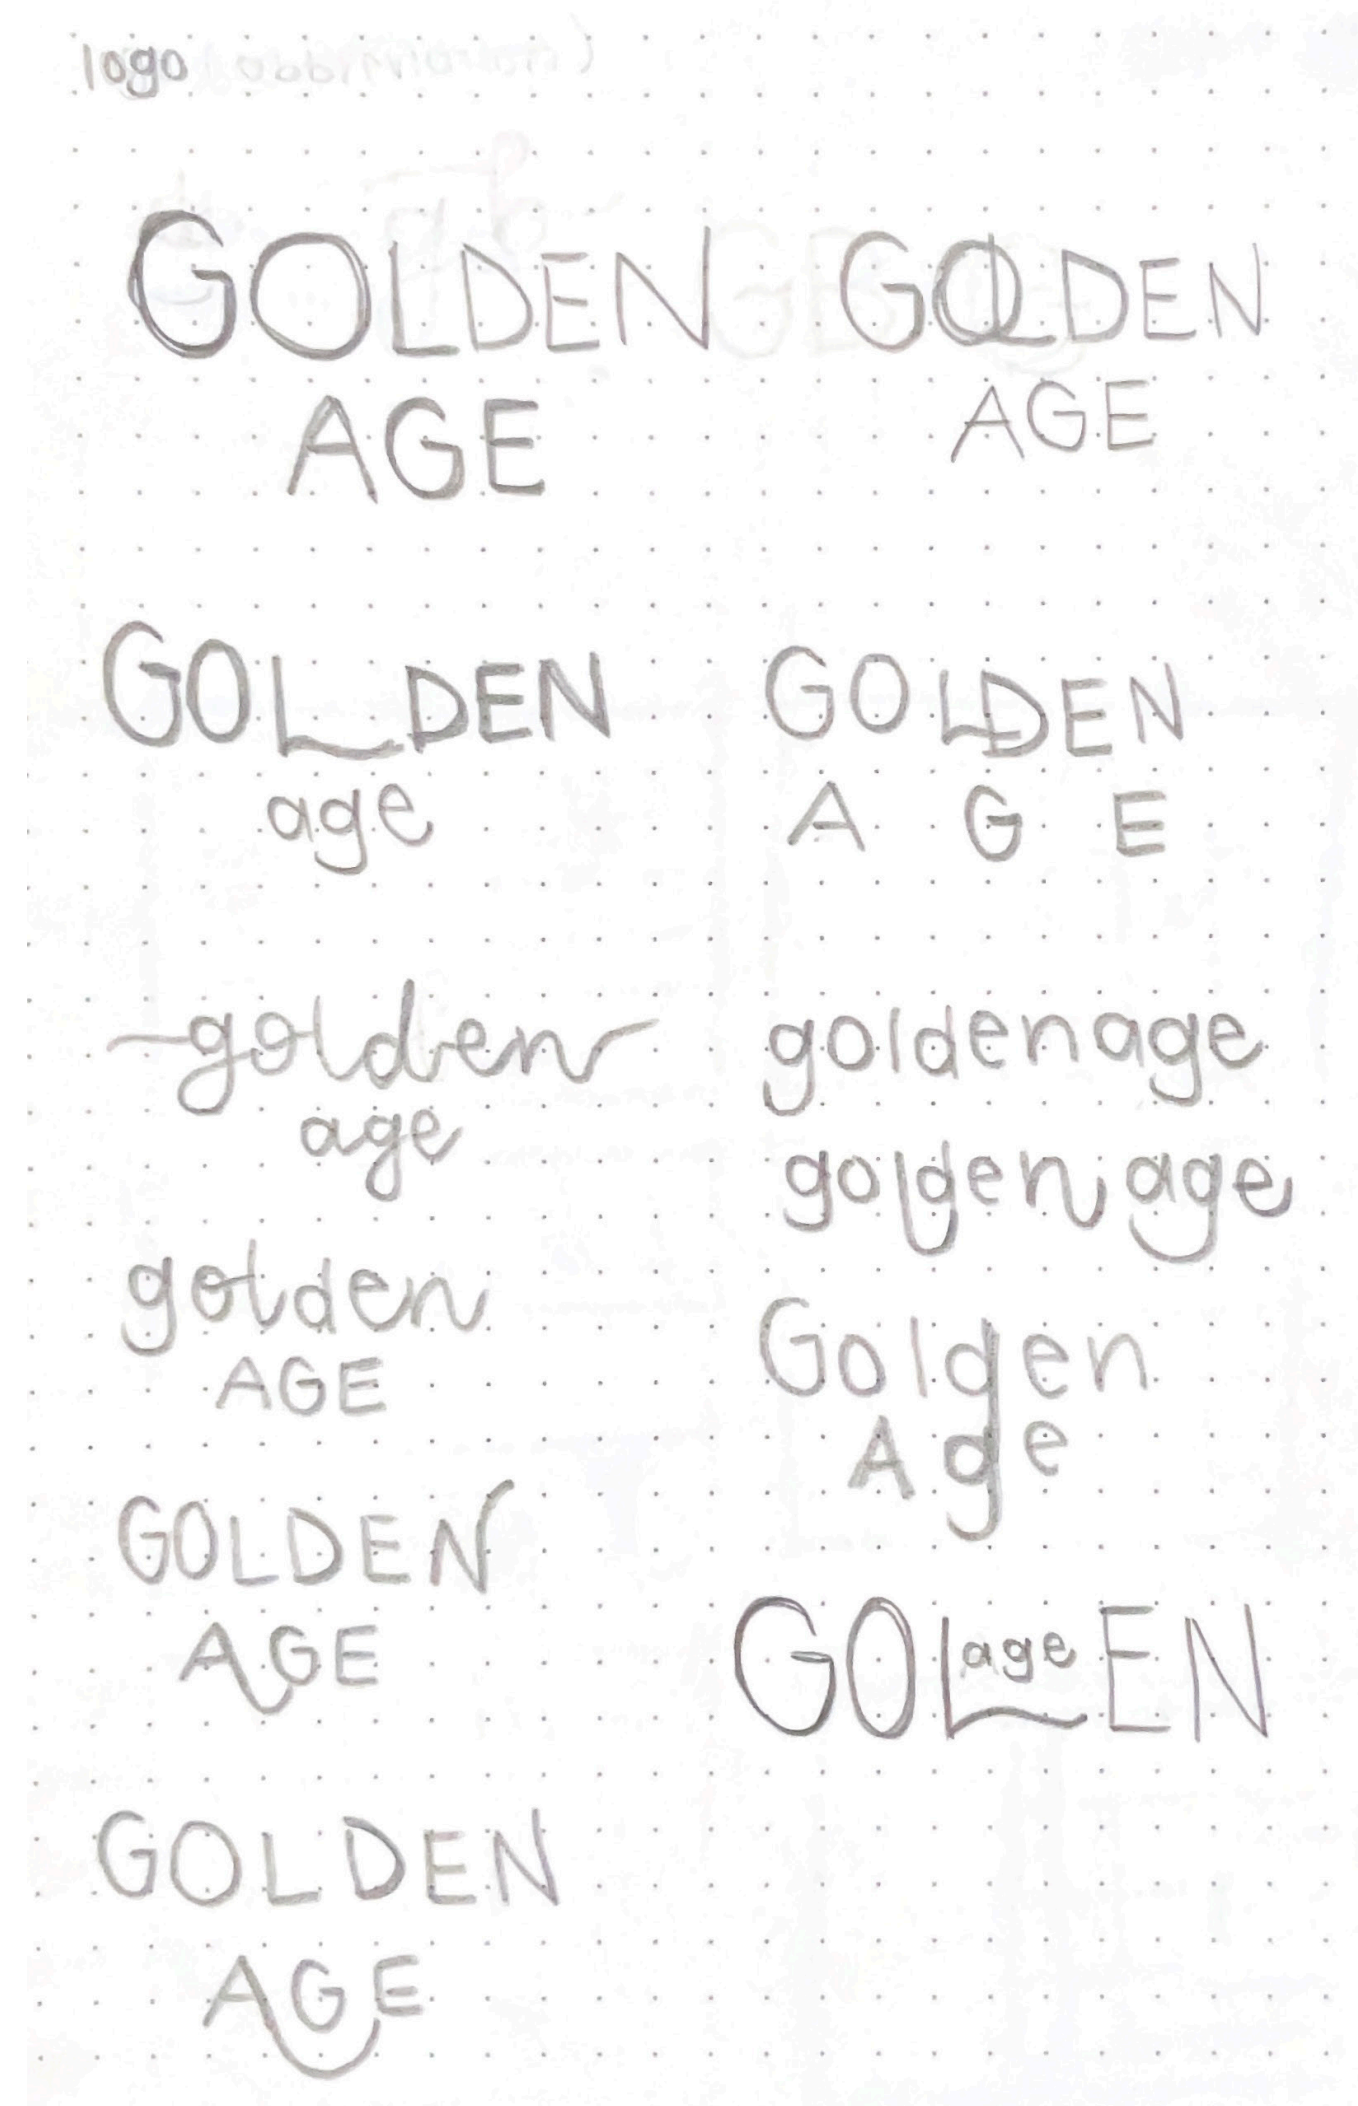 logo
GOLDEN
AGE
GOLDEN
AGE
GOLDEN
age
GOLDEN
A G E
golden
age
goldenage
golden age
golden
AGE
Golden
Age
GOLDEN
AGE
GOL age EN
GOLDEN
AGE